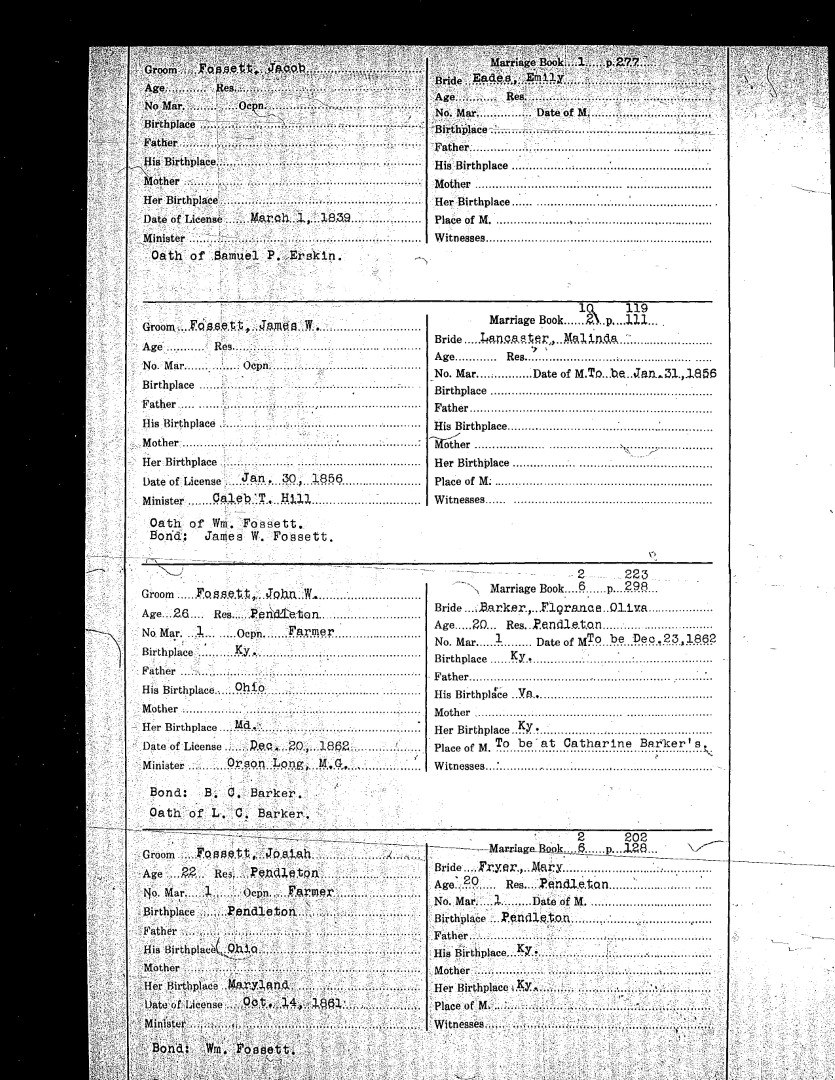 Marriage Book 1 p. 277
Groom Fossett, Jacob
Bride Eades, Emily
Age Res.
Age Res.
No Mar. Ocpn.
No. Mar. Date of M.
Birthplace
Birthplace
Father
Father
His Birthplace
His Birthplace
Mother
Mother
Her Birthplace
Her Birthplace
Date of License March 1, 1839
Place of M.
Minister
Witnesses
Oath of Samuel P. Erskin.
10 119
Marriage Book 2\ p. 111
Groom Fossett, James W.
Bride Lancaster, Malinda
Age Res.
Age Res.
No. Mar. Ocpn.
No. Mar. Date of M. To be Jan. 31, 1856
Birthplace
Birthplace
Father
Father
His Birthplace
His Birthplace
Mother
Mother
Her Birthplace
Her Birthplace
Date of License Jan. 30, 1856
Place of M.
Minister Caleb T. Hill
Witnesses
Oath of Wm. Fossett.
Bond: James W. Fossett.
2 223
Marriage Book 6 p. 298
Groom Fossett, John W.
Bride Barker, Florance Oliva
Age 26 Res. Pendleton
Age 20 Res. Pendleton
No Mar. 1 Ocpn. Farmer
No. Mar. 1 Date of M To be Dec. 23, 1862
Birthplace Ky.
Birthplace Ky.
Father
Father
His Birthplace Ohio
His Birthplace Va.
Mother
Mother
Her Birthplace Md.
Her Birthplace Ky.
Date of License Dec. 20, 1862
Place of M. To be at Catharine Barker's.
Minister Orson Long, M.G.
Witnesses
Bond: B. C. Barker.
Oath of L. C. Barker.
2 202
Marriage Book 6 p. 128
Groom Fossett, Josiah
Bride Fryer, Mary
Age 22 Res. Pendleton
Age 20 Res. Pendleton
No. Mar. 1 Ocpn. Farmer
No. Mar. 1 Date of M.
Birthplace Pendleton
Birthplace Pendleton
Father
Father
His Birthplace Ohio
His Birthplace Ky.
Mother
Mother
Her Birthplace Maryland
Her Birthplace Ky.
Date of License Oct. 14, 1861
Place of M.
Minister
Witnesses
Bond: Wm. Fossett.